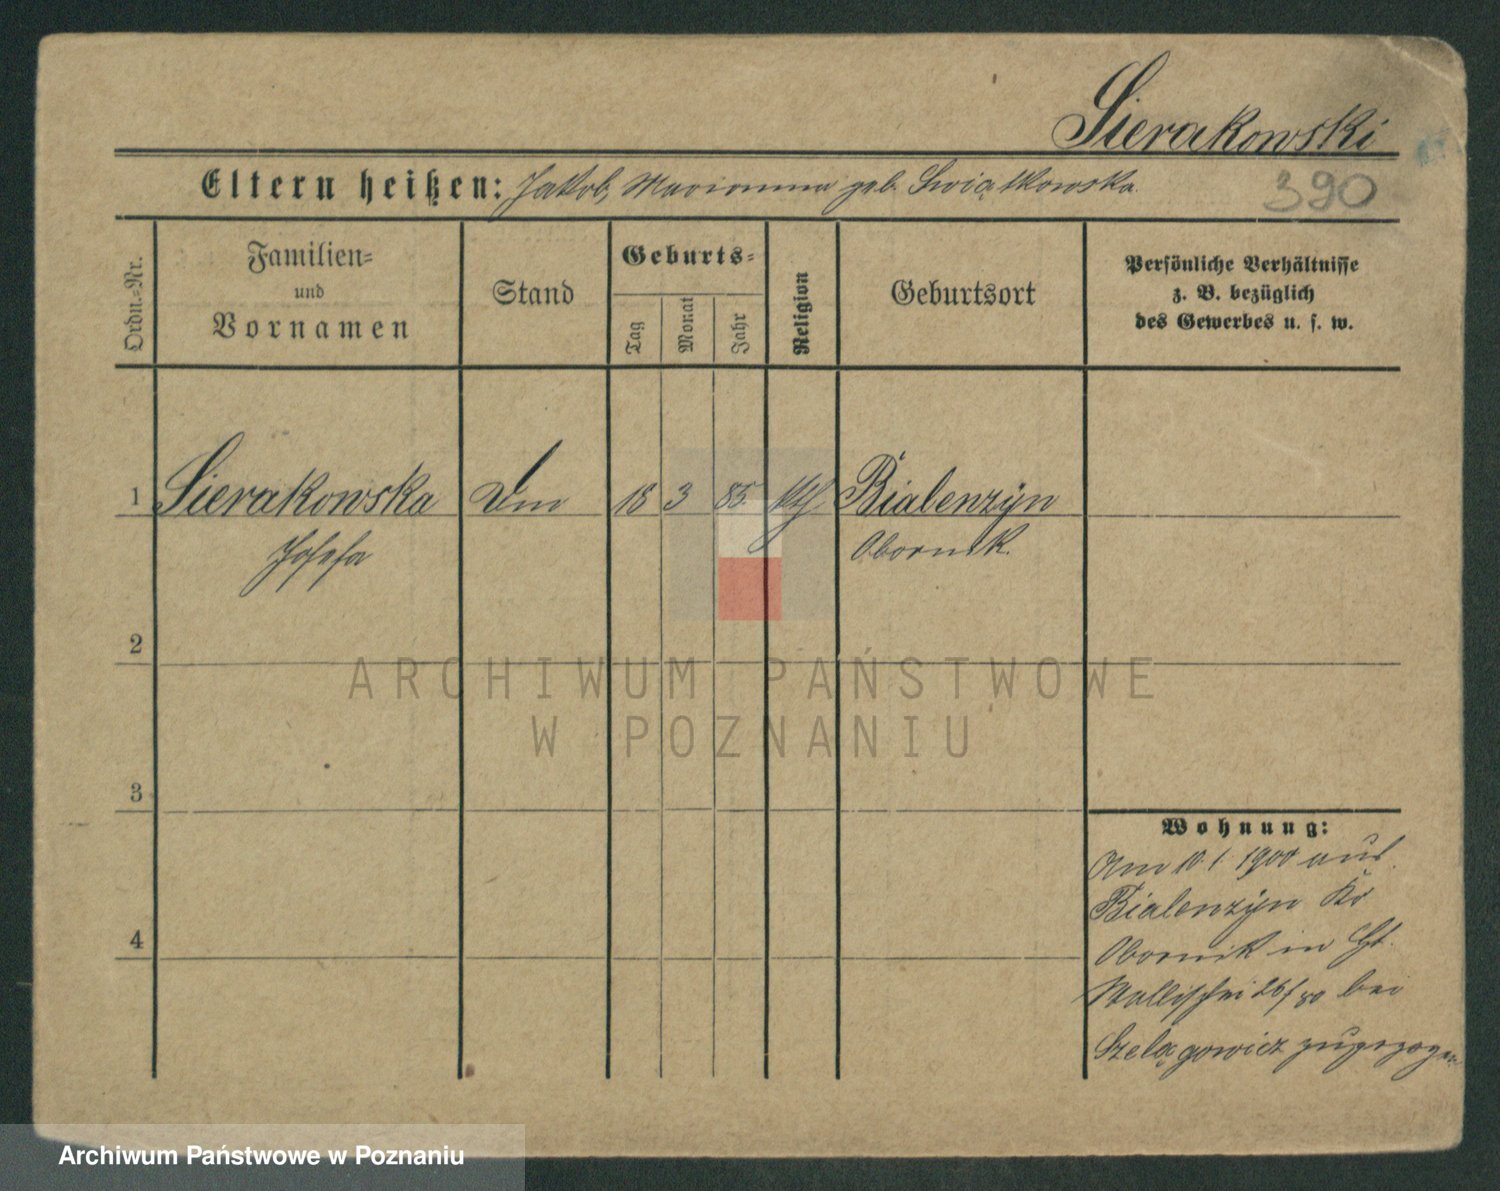 Sierakowski
Eltern heißen: Jakob, Marianna geb. Swiątkowska
390
Ordn.=Nr.
Familien=
und
Vornamen
Stand
Geburts=
Tag
Monat
Jahr
Religion
Geburtsort
Persönliche Verhältnisse
z. B. bezüglich
des Gewerbes u. s. w.
1 Sierakowska 18 3 85 kth Bialenzÿn
Josefa Obornik.
2
3
4
Wohnung:
Am 10.1 1900 aus
Bialenzÿn Kr
Obornik in
Wallischei 26/ bei
Szelągowicz zugezogen
ARCHIWUM PAŃSTWOWE
W POZNANIU
Archiwum Państwowe w Poznaniu